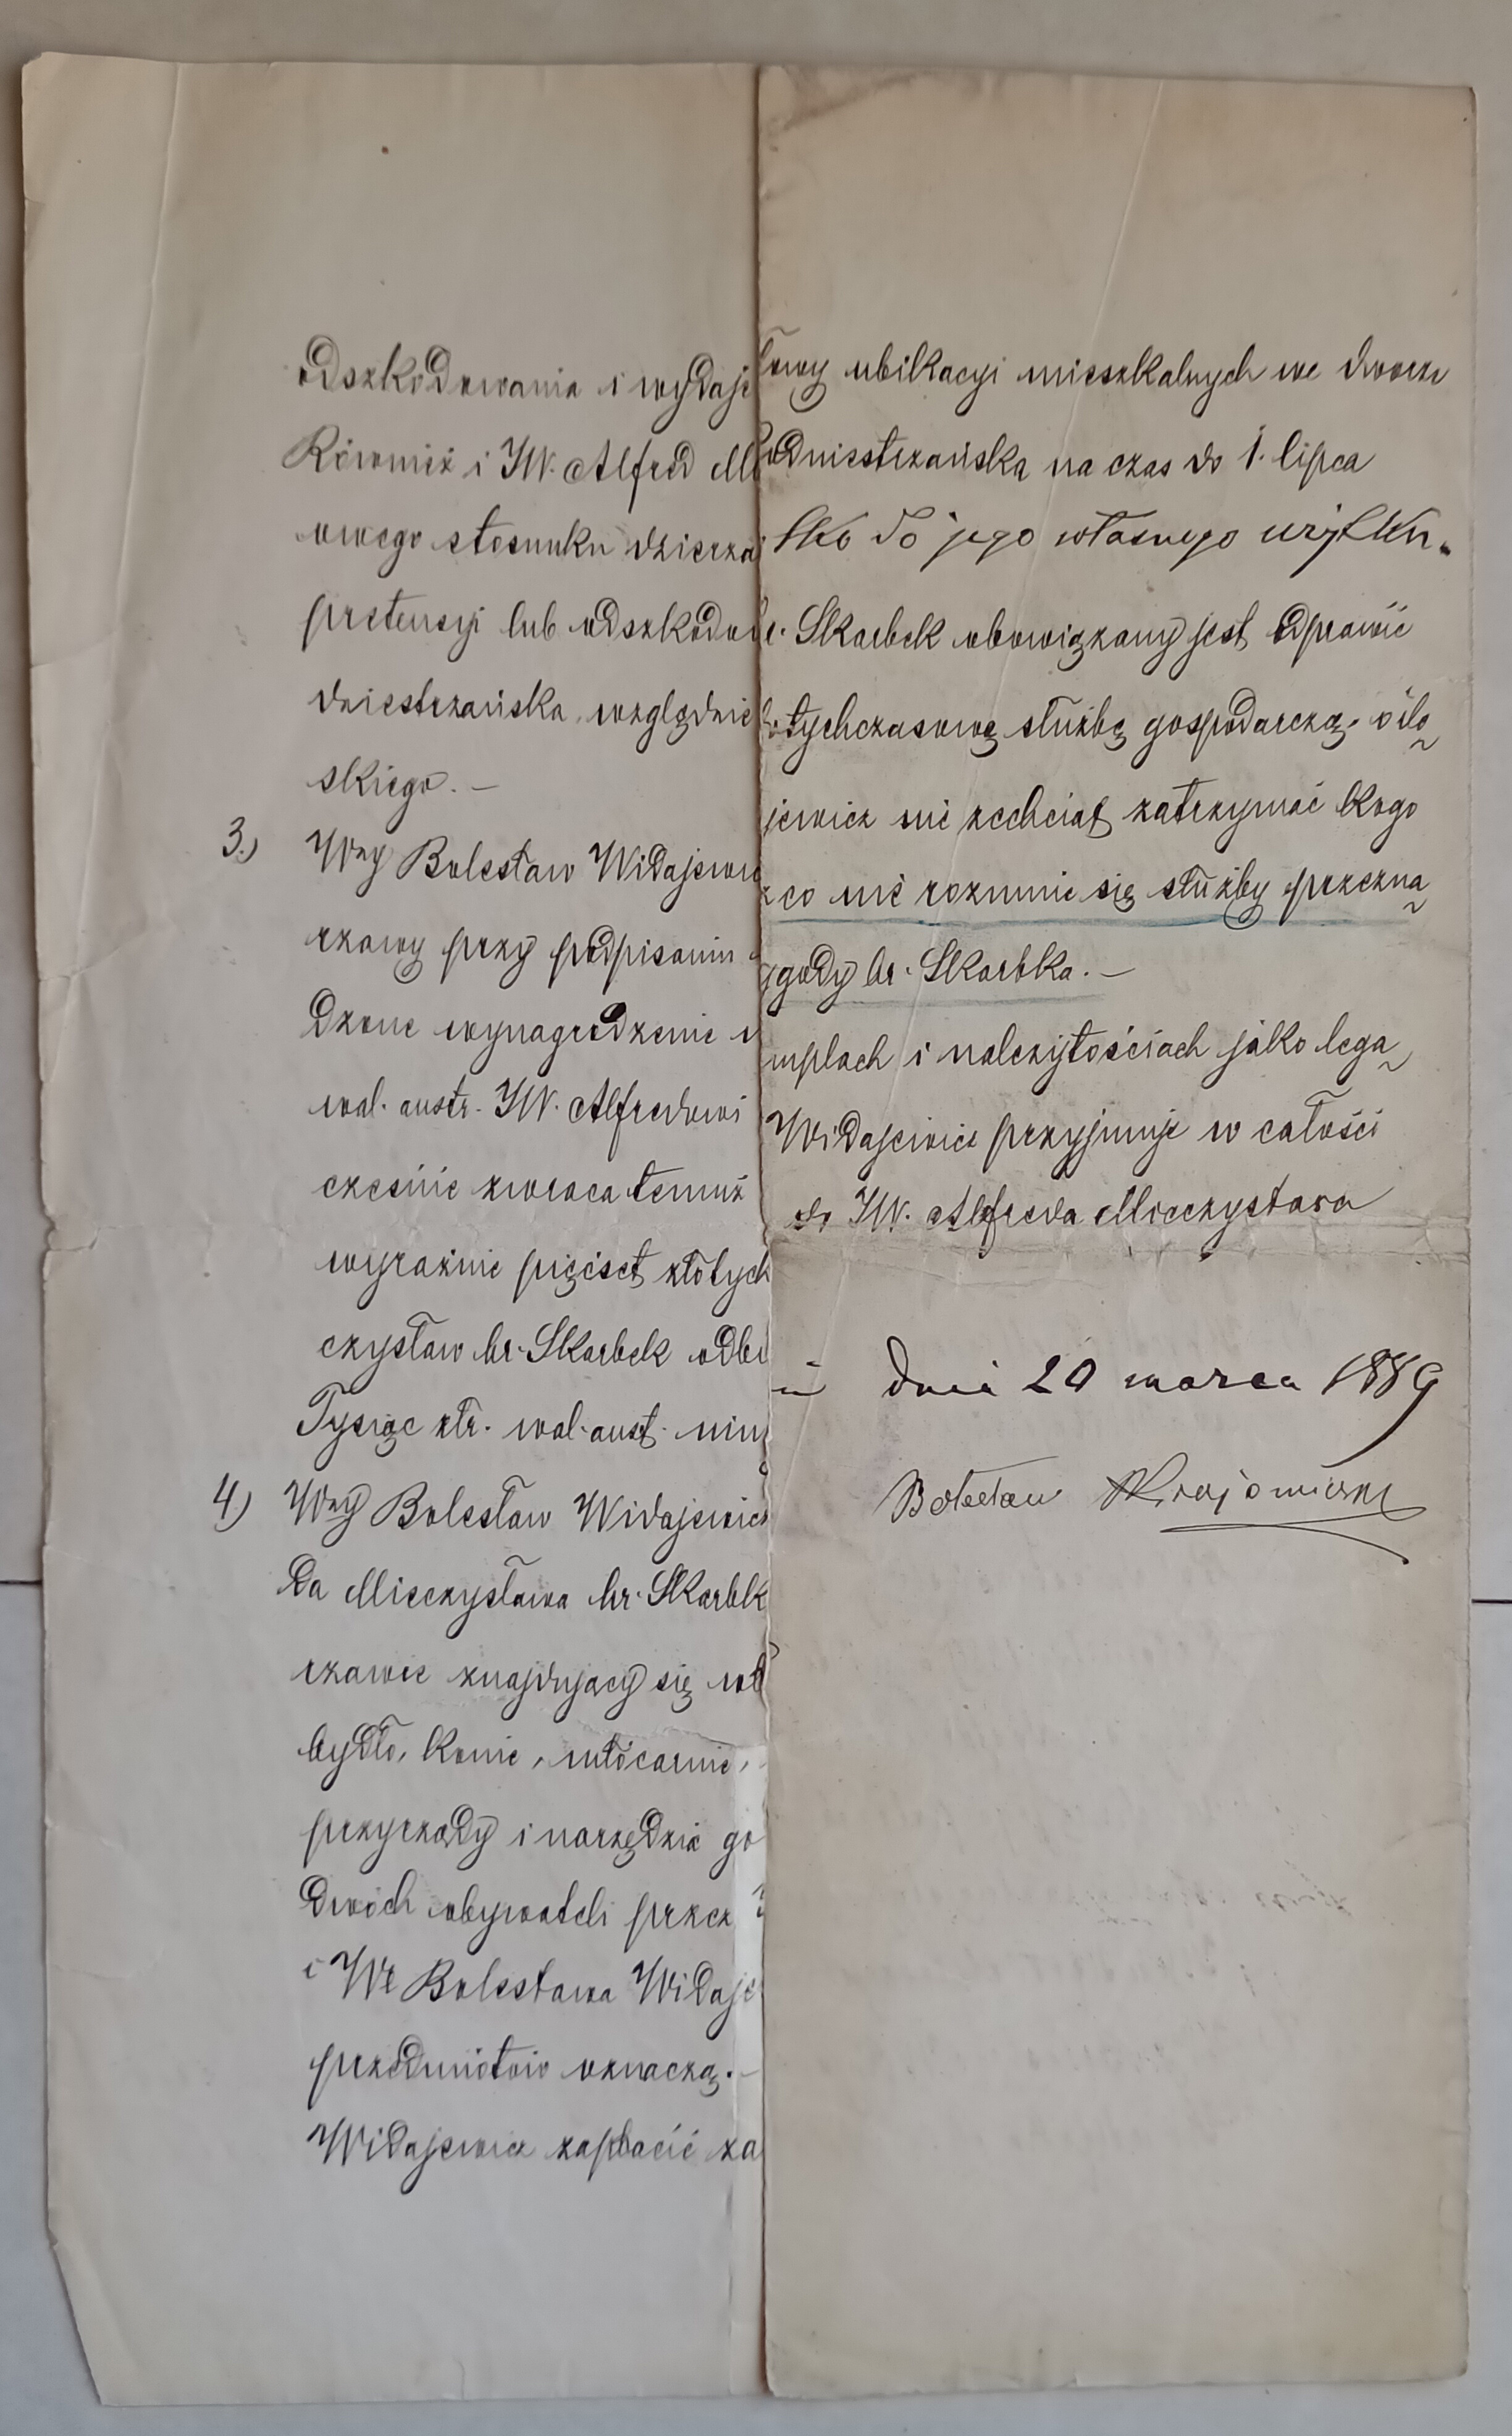 odszkodowania i wydaje
Również i JW. Alfred Mi
owego stosunku dzierża
pretensyi lub odszkodow
dniestrzańska, względnie
skiego. –
3.) Wny Bolesław Widajewi
rżawy przy podpisaniu
dzone wynagrodzenie w
wal. austr. JW. Alfredowi
cześnie zwraca temuż
wyraźnie pięćset złotych
czysław hr. Skarbek odbi
Tysiąc złr. wal. aust. nin
4) Wny Bolesław Widajewicz
da Mieczysława hr. Skarbk
rżawie znajdujący się
bydło, konie, młócarnie,
przyrządy i narzędzia go
dwóch obywateli przez
i We Bolesława Widaje
przedmiotów oznaczą. –
Widajewicz zapłacić za
łowy ubikacyi mieszkalnych we dworze
odniestrzańska na czas do 1. lipca
lko do jego własnego użytku.
r. Skarbek obowiązany jest odprawić
dotychczasową służbę gospodarczą, o ile
jewicz nie zechciał zatrzymać kogo
z co nie rozumie się służby przezna
gody hr. Skarbka. –
mplach i należytościach jako lega
Widajewicz przyjmuje w całości
do JW. Alfreda Mieczysława
dnia 20 marca 1889
Bolesław